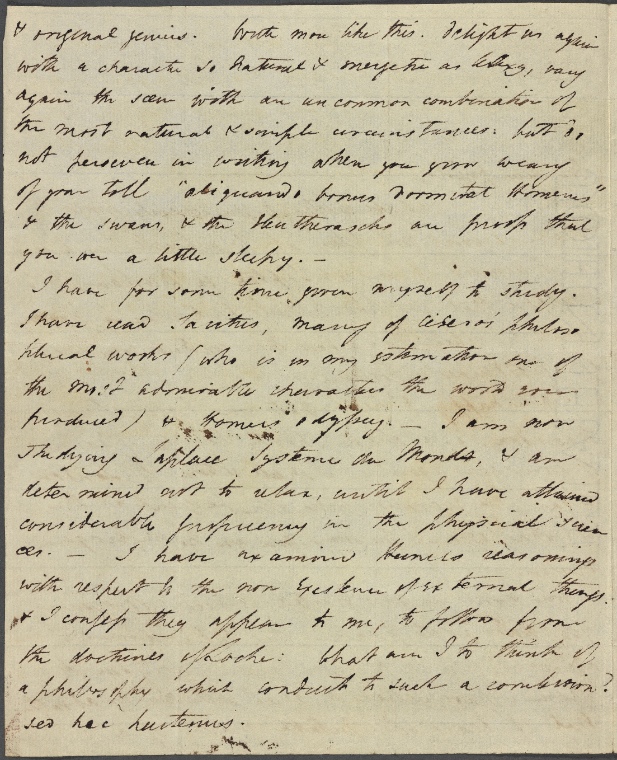 & original genius. Write more like this. Delight us again
with a character so natural & energetic as Alexy, vary
again the scene with an uncommon combination of
the most natural & simple circumstances: but do
not persevere in writing when you grow weary
of your toil "aliquando bonus dormitat Homerus"
& the swans, & the Eleutherarchs are proofs that
you were a little sleepy. —
I have for some time given myself to study.
I have read Tacitus, many of Cicero's philoso
phical works (who is in my estimation one of
the most admirable characters the world ever
produced) & Homer's Odyssey. — I am now
studying Laplace Systeme du Monde, & am
determined not to relax, until I have attained
considerable proficiency in the physical scien
ces. — I have examined Hume's reasonings
with respect to the non existence of external things
& I confess they appear to me, to follow from
the doctrines of Locke: What am I to think of
a philosophy which conducts to such a conclusion?
sed hæc hactenus.